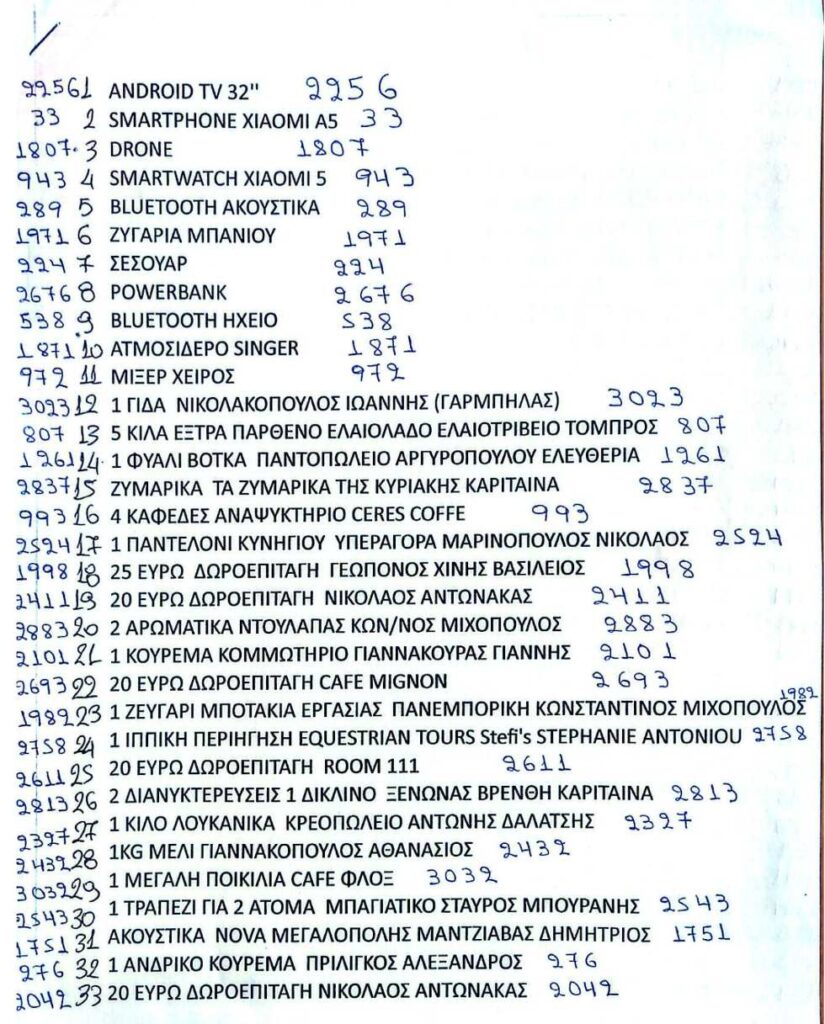 2256 1 ANDROID TV 32" 2256
33 2 SMARTPHONE XIAOMI A5 33
1807. 3 DRONE 1807
943 4 SMARTWATCH XIAOMI 5 943
289 5 BLUETOOTH ΑΚΟΥΣΤΙΚΑ 289
1971 6 ΖΥΓΑΡΙΑ ΜΠΑΝΙΟΥ 1971
224 7 ΣΕΣΟΥΑΡ 224
2676 8 POWERBANK 2676
538 9 BLUETOOTH ΗΧΕΙΟ 538
1871 10 ΑΤΜΟΣΙΔΕΡΟ SINGER 1871
972 11 ΜΙΞΕΡ ΧΕΙΡΟΣ 972
3023 12 1 ΓΙΔΑ ΝΙΚΟΛΑΚΟΠΟΥΛΟΣ ΙΩΑΝΝΗΣ (ΓΑΡΜΠΗΛΑΣ) 3023
807 13 5 ΚΙΛΑ ΕΞΤΡΑ ΠΑΡΘΕΝΟ ΕΛΑΙΟΛΑΔΟ ΕΛΑΙΟΤΡΙΒΕΙΟ ΤΟΜΠΡΟΣ 807
1261 14. 1 ΦΥΑΛΙ ΒΟΤΚΑ ΠΑΝΤΟΠΩΛΕΙΟ ΑΡΓΥΡΟΠΟΥΛΟΥ ΕΛΕΥΘΕΡΙΑ 1261
2837 15 ΖΥΜΑΡΙΚΑ ΤΑ ΖΥΜΑΡΙΚΑ ΤΗΣ ΚΥΡΙΑΚΗΣ ΚΑΡΙΤΑΙΝΑ 2837
993 16 4 ΚΑΦΕΔΕΣ ΑΝΑΨΥΚΤΗΡΙΟ CERES COFFE 993
2524 17 1 ΠΑΝΤΕΛΟΝΙ ΚΥΝΗΓΙΟΥ ΥΠΕΡΑΓΟΡΑ ΜΑΡΙΝΟΠΟΥΛΟΣ ΝΙΚΟΛΑΟΣ 2524
1998 18 25 ΕΥΡΩ ΔΩΡΟΕΠΙΤΑΓΗ ΓΕΩΠΟΝΟΣ ΧΙΝΗΣ ΒΑΣΙΛΕΙΟΣ 1998
2411 19 20 ΕΥΡΩ ΔΩΡΟΕΠΙΤΑΓΗ ΝΙΚΟΛΑΟΣ ΑΝΤΩΝΑΚΑΣ 2411
2883 20 2 ΑΡΩΜΑΤΙΚΑ ΝΤΟΥΛΑΠΑΣ ΚΩΝ/ΝΟΣ ΜΙΧΟΠΟΥΛΟΣ 2883
2101 21 1 ΚΟΥΡΕΜΑ ΚΟΜΜΩΤΗΡΙΟ ΓΙΑΝΝΑΚΟΥΡΑΣ ΓΙΑΝΝΗΣ 2101
2693 22 20 ΕΥΡΩ ΔΩΡΟΕΠΙΤΑΓΗ CAFE MIGNON 2693
1982 23 1 ΖΕΥΓΑΡΙ ΜΠΟΤΑΚΙΑ ΕΡΓΑΣΙΑΣ ΠΑΝΕΜΠΟΡΙΚΗ ΚΩΝΣΤΑΝΤΙΝΟΣ ΜΙΧΟΠΟΥΛΟΣ 1982
2758 24 1 ΙΠΠΙΚΗ ΠΕΡΙΗΓΗΣΗ EQUESTRIAN TOURS Stefi's STEPHANIE ANTONIOU 2758
2611 25 20 ΕΥΡΩ ΔΩΡΟΕΠΙΤΑΓΗ ROOM 111 2611
2813 26 2 ΔΙΑΝΥΚΤΕΡΕΥΣΕΙΣ 1 ΔΙΚΛΙΝΟ ΞΕΝΩΝΑΣ ΒΡΕΝΘΗ ΚΑΡΙΤΑΙΝΑ 2813
2327 27 1 ΚΙΛΟ ΛΟΥΚΑΝΙΚΑ ΚΡΕΟΠΩΛΕΙΟ ΑΝΤΩΝΗΣ ΔΑΛΑΤΣΗΣ 2327
2432 28 1KG ΜΕΛΙ ΓΙΑΝΝΑΚΟΠΟΥΛΟΣ ΑΘΑΝΑΣΙΟΣ 2432
3032 29 1 ΜΕΓΑΛΗ ΠΟΙΚΙΛΙΑ CAFE ΦΛΟΞ 3032
2543 30 1 ΤΡΑΠΕΖΙ ΓΙΑ 2 ΑΤΟΜΑ ΜΠΑΓΙΑΤΙΚΟ ΣΤΑΥΡΟΣ ΜΠΟΥΡΑΝΗΣ 2543
1751 31 ΑΚΟΥΣΤΙΚΑ NOVA ΜΕΓΑΛΟΠΟΛΗΣ ΜΑΝΤΖΙΑΒΑΣ ΔΗΜΗΤΡΙΟΣ 1751
276 32 1 ΑΝΔΡΙΚΟ ΚΟΥΡΕΜΑ ΠΡΙΛΙΓΚΟΣ ΑΛΕΞΑΝΔΡΟΣ 276
2042 33 20 ΕΥΡΩ ΔΩΡΟΕΠΙΤΑΓΗ ΝΙΚΟΛΑΟΣ ΑΝΤΩΝΑΚΑΣ 2042